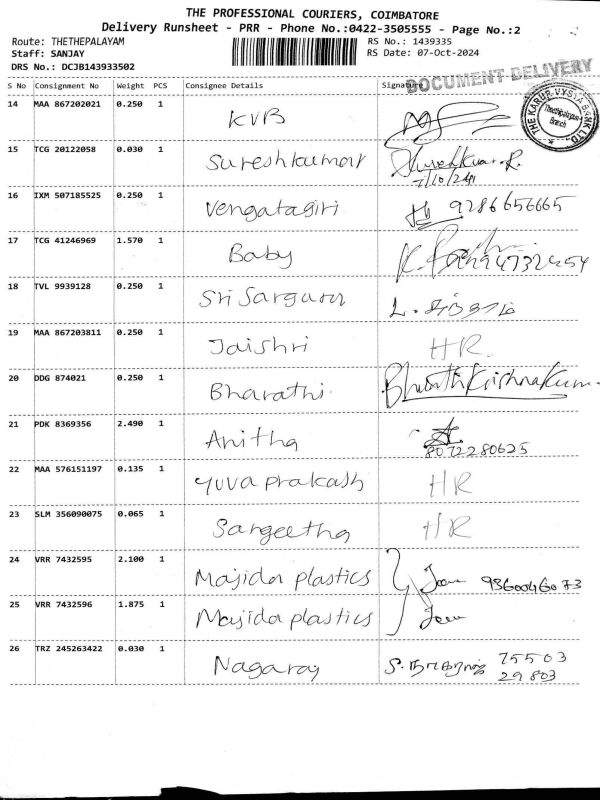 THE PROFESSIONAL COURIERS, COIMBATORE
Delivery Runsheet - PRR - Phone No.:0422-3505555 - Page No.:2
Route: THETHEPALAYAM RS No.: 1439335
Staff: SANJAY RS Date: 07-Oct-2024
DRS No.: DCJB143933502
DOCUMENT DELIVERY
S No Consignment No Weight PCS Consignee Details Signature
THE KARUR VYSYA BANK LTD.
Thethipalayam
Branch
14 MAA 867202021 0.250 1 KVB
15 TCG 20122058 0.030 1 Sureshkumar
7/10/24
16 IXM 507185525 0.250 1 Vengatagiri 9286656665
17 TCG 41246969 1.570 1 Baby
18 TVL 9939128 0.250 1 Sri Sarguru
19 MAA 867203811 0.250 1 Jaishri HR
20 DDG 874021 0.250 1 Bharathi BharathKrishnaKumar
21 PDK 8369356 2.490 1 Anitha
8072280625
22 MAA 576151197 0.135 1 Yuva prakash HR
23 SLM 356090075 0.065 1 Sangeetha HR
24 VRR 7432595 2.100 1 Majida plastics 9360046073
25 VRR 7432596 1.875 1 Majida plastics
26 TRZ 245263422 0.030 1 Nagaraj 75503
29803